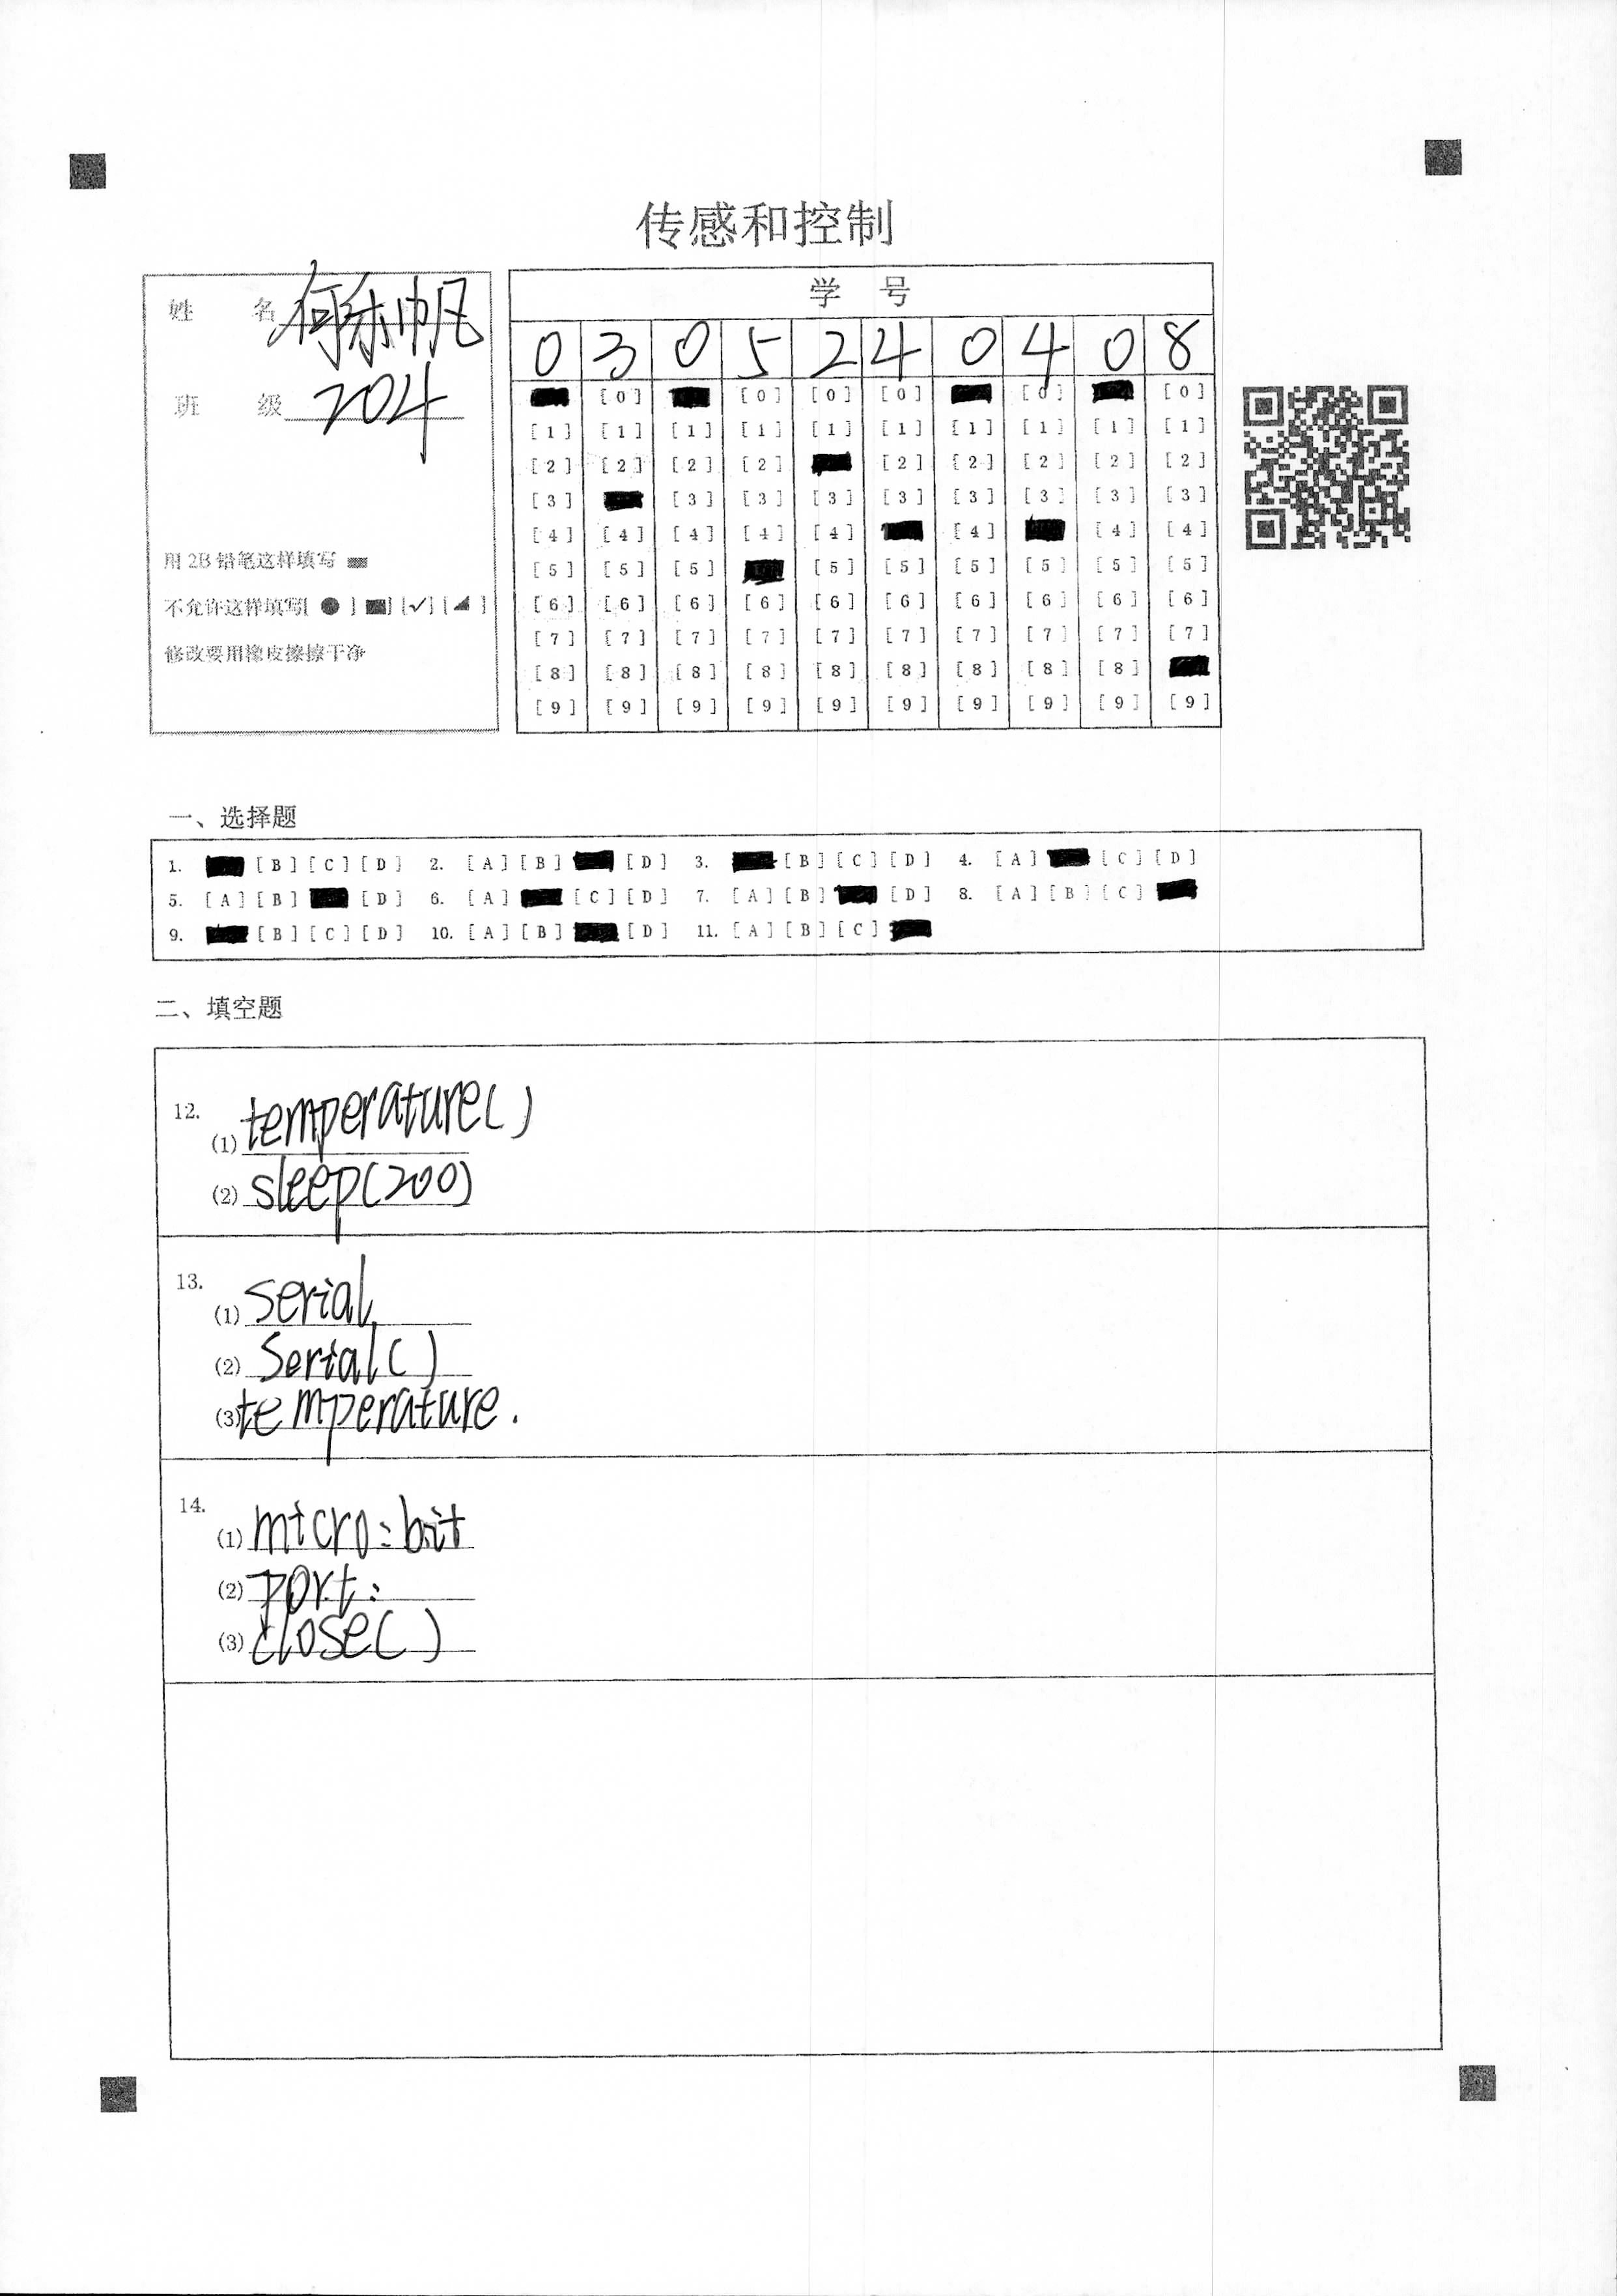 传感和控制
姓 名 何 帆
班 级 204
用2B铅笔这样填写
不允许这样填写[ ● ] [√] [ ]
修改要用橡皮擦擦干净
学 号
0 3 0 5 2 4 0 4 0 8
[0] [0] [0] [0] [0] [0]
[1] [1] [1] [1] [1] [1] [1] [1] [1] [1]
[2] [2] [2] [2] [2] [2] [2] [2] [2]
[3] [3] [3] [3] [3] [3] [3] [3] [3]
[4] [4] [4] [4] [4] [4] [4] [4]
[5] [5] [5] [5] [5] [5] [5] [5] [5]
[6] [6] [6] [6] [6] [6] [6] [6] [6] [6]
[7] [7] [7] [7] [7] [7] [7] [7] [7] [7]
[8] [8] [8] [8] [8] [8] [8] [8] [8]
[9] [9] [9] [9] [9] [9] [9] [9] [9] [9]
一、选择题
1. [B] [C] [D] 2. [A] [B] [D] 3. [B] [C] [D] 4. [A] [C] [D]
5. [A] [B] [D] 6. [A] [C] [D] 7. [A] [B] [D] 8. [A] [B] [C]
9. [B] [C] [D] 10. [A] [B] [D] 11. [A] [B] [C]
二、填空题
12.
(1) temperature()
(2) sleep(200)
13.
(1) serial.
(2) Serial()
(3) temperature.
14.
(1) micro:bit
(2) port:
(3) close()